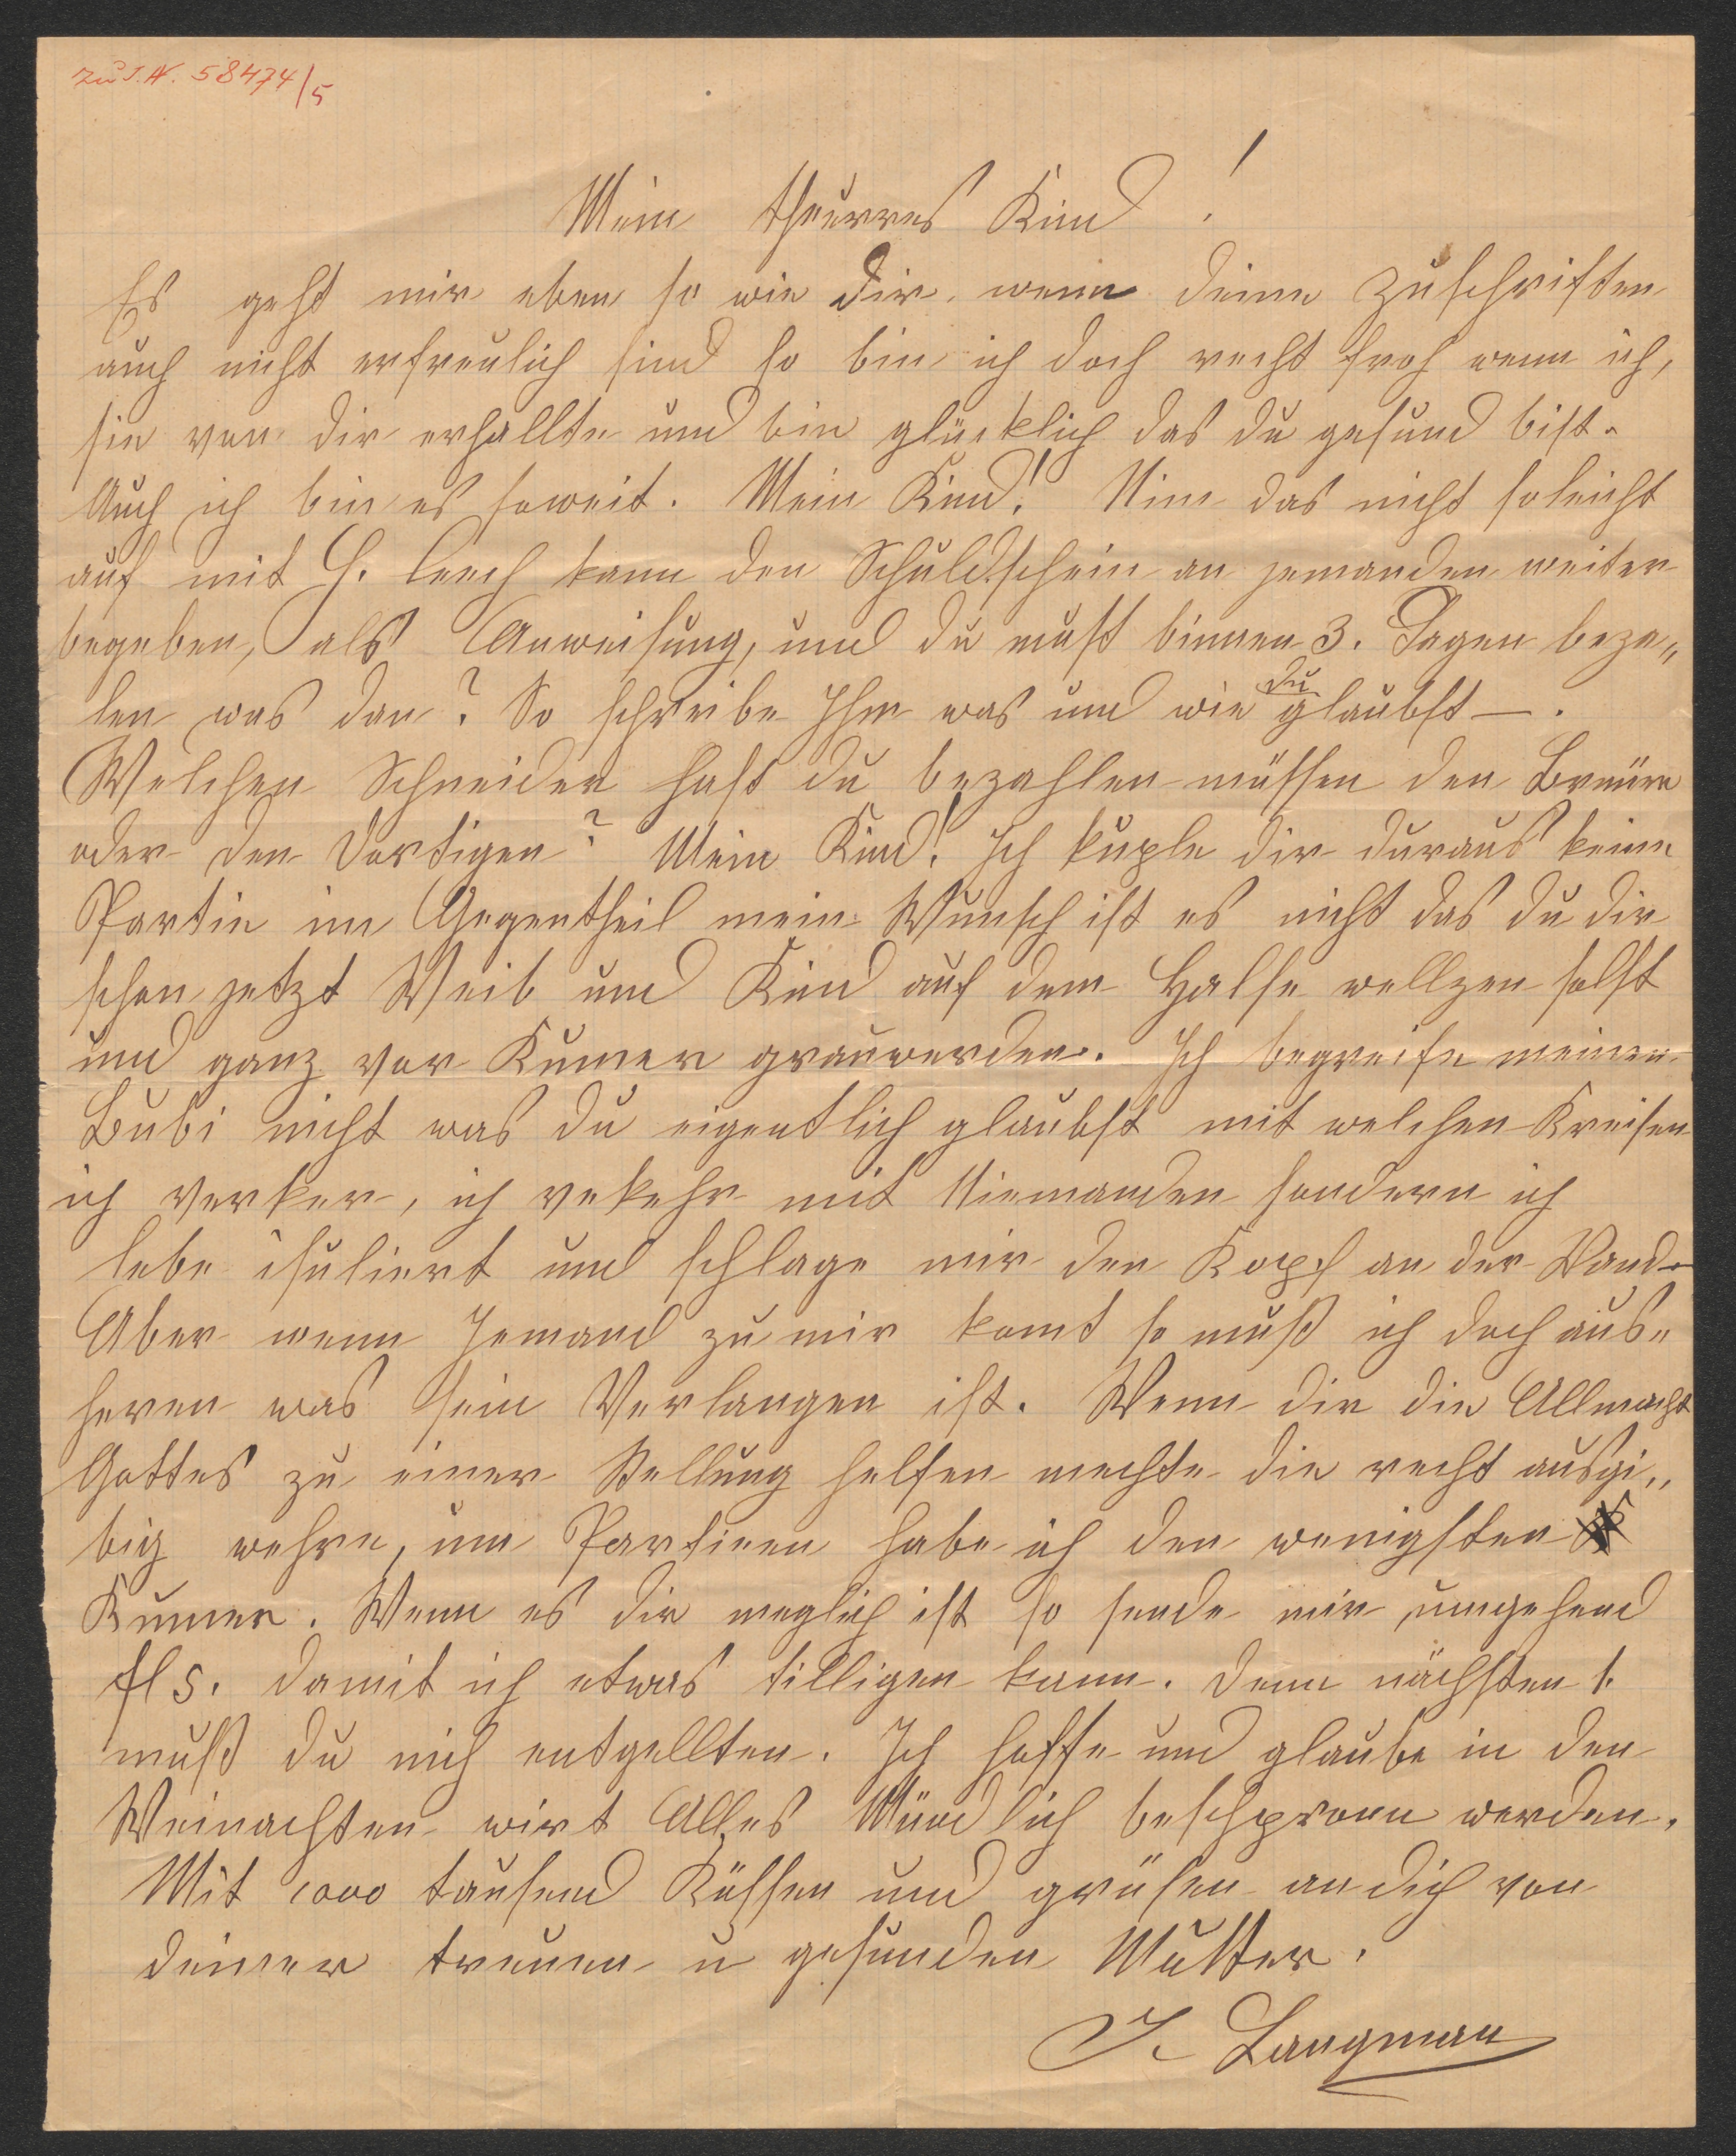 zu I.N. 58474/5
Mein theueres Kind !
Es geht mir eben so wie dir. wenn deine Zuschriften
auch nicht erfreulich sind so bin ich doch recht froh wenn ich,
sie von dir erhallte und bin glücklich das du gesund bist.
Auch ich bin es soweit. Mein Kind! Nim das nicht so leicht
auf mit H. kann den Schuldschein an jemanden weiter
begeben, als Anweisung, und du must binnen 3. Tagen beza„
len was dan? So schreibe Ihm was und wie du glaubst —.
Welchen Schneider hast du bezahlen müssen den
oder den dortigen? Mein Kind! Ich kuple dir duraus keine
Partie im Gegentheil mein Wunsch ist es nicht das du dir
schon jetzt Weib und Kind auf dem Halse wellzen solst
und ganz vor Kumer grauwerden. Ich begreife meinen
Bubi nicht was du eigentlich glaubst mit welchen Kreisen
ich verker, ich vekehr mit Niemanden sondern ich
lebe isuliert und schlage mir den Kopf an der Wand
Aber wenn Jemand zu mir komt so muß ich doch aus„
heren was sein Verlangen ist. Wenn dir die Allmacht
Gottes zu einer Stellung helfen mechte die recht ausgi„
big wehre, um Partieen habe ich den wenigsten
Kumer. Wenn es dir meglich ist so sende mir umgehend
fl 5. damit ich etwas tilligen kann. Denn nächsten 1.
muß du mich entgellten. Ich hoffe und glaube in den
Weinachten wirt Alles Mündlich werden.
Mit 1000 tausend Küssen und grüsen an dich von
deiner treuen u gesunden Mutter.
J. Langmann